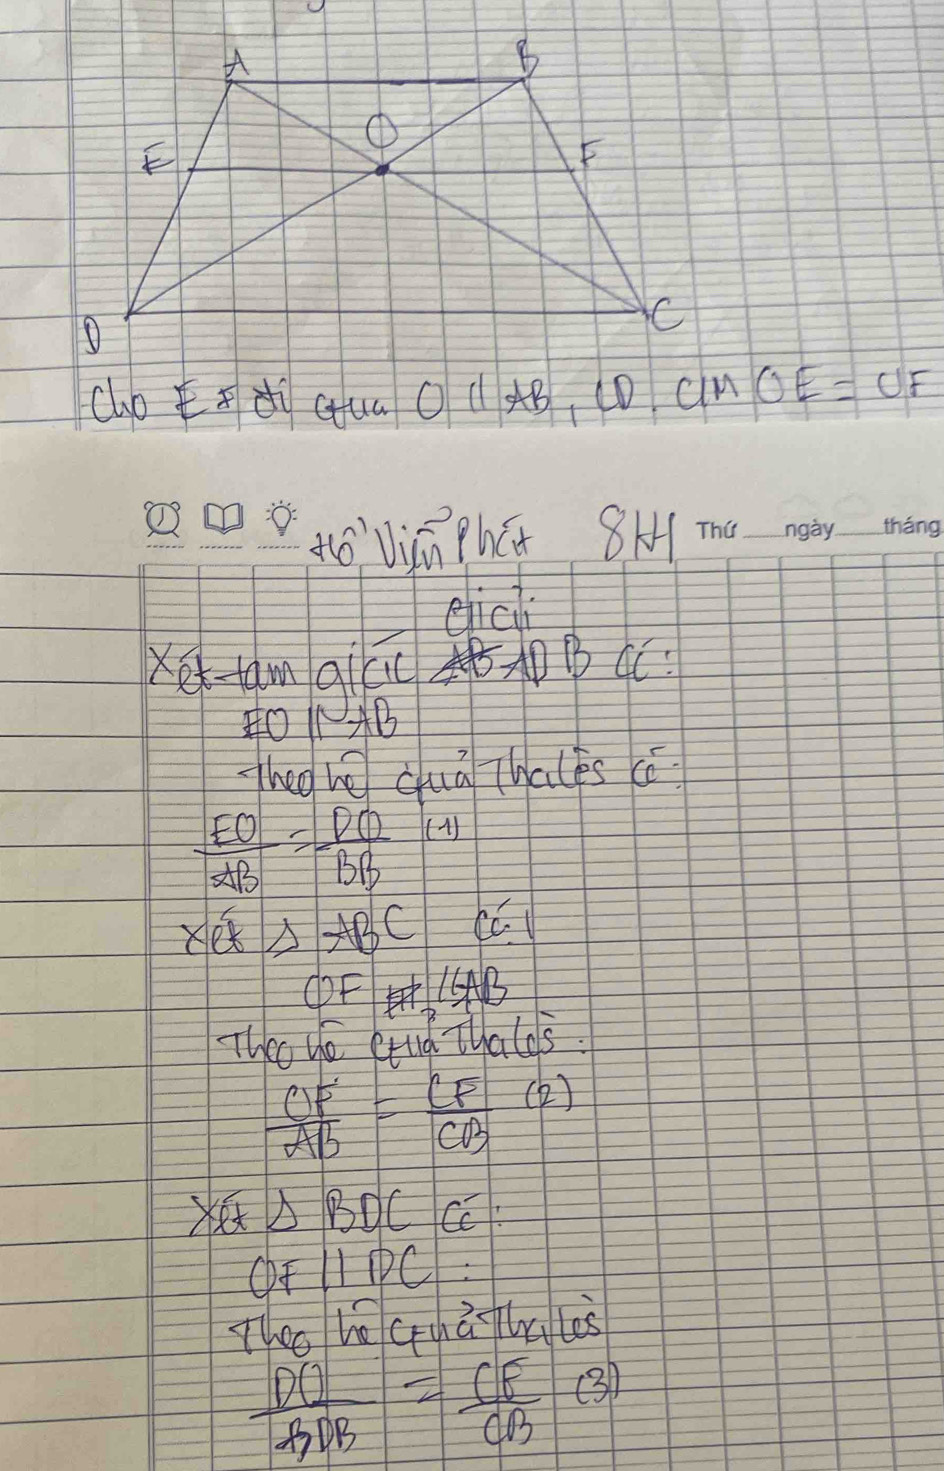 A B
O
E F
D C
Cho EF đi qua O // AB, CD. CM OE = OF
Hồ Viễn Phát 8H1 Thứ ngày tháng
Giải
Xét tam giác ADB có:
EO // AB
Theo hệ quả Thalès có:
EO/AB = DO/BB (1)
Xét Δ ABC có:
OF // AB
Theo hệ quả Thalès:
OF/AB = CF/CB (2)
Xét Δ BDC có:
OF // DC :
Theo hệ quả Thalès
DO/DB = CF/CB (3)